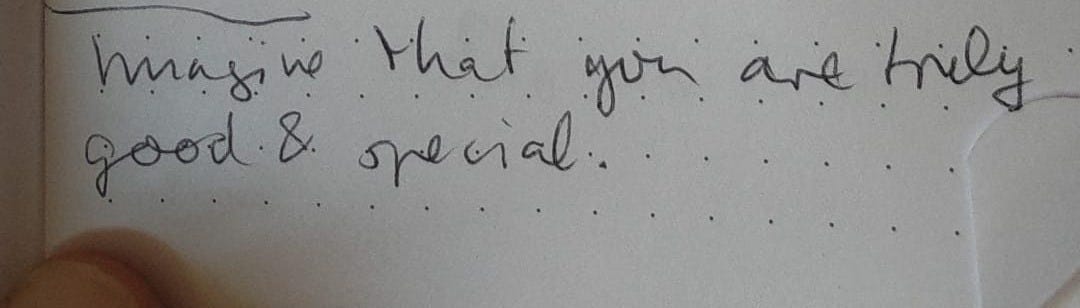 Imagine that you are truly
good & special.